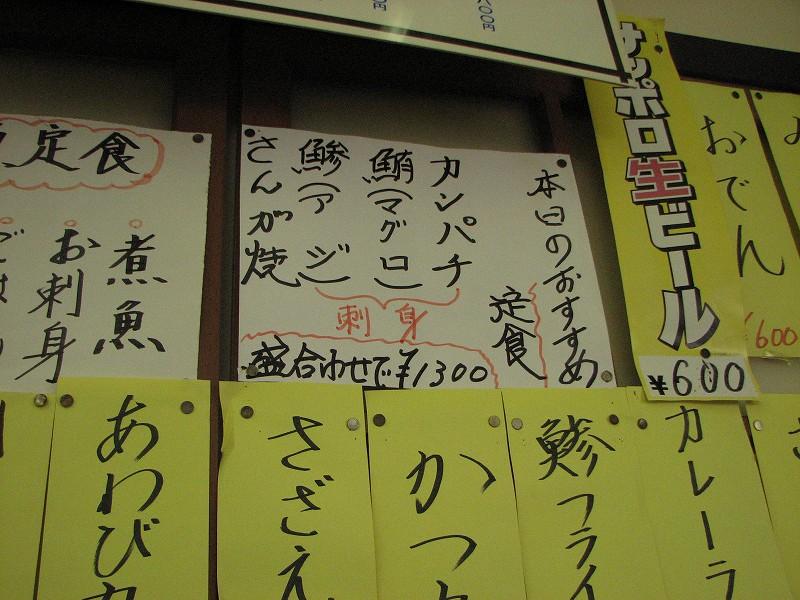 00円
定食
煮魚
お刺身
本日のおすすめ
定食
カンパチ
鮪(マグロ)
鯵(アジ)
さんが焼
刺身
盛合わせで¥1300
サッポロ生ビール
¥600
おでん
¥600
カレーラ
鯵フライ
かつ
さざえ
あわび